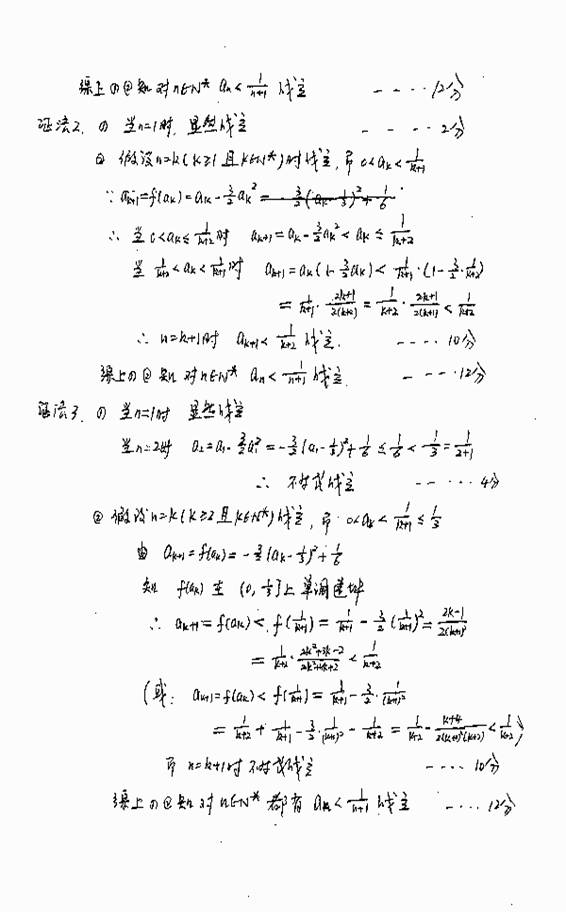 综上①②知对n∈N* aₙ<1/(n+1) 成立 ----12分
证法2. ① 当n=1时, 显然成立 ----2分
② 假设n=k(k≥1且k∈N*)时成立, 即 0<aₖ<1/(k+1)
∵ aₖ₊₁=f(aₖ)=aₖ-3/2aₖ²=-3/2(aₖ-1/3)²+1/6
∴ 当0<aₖ≤1/(k+2)时 aₖ₊₁=aₖ-3/2aₖ²<aₖ≤1/(k+2)
当1/(k+2)<aₖ<1/(k+1)时 aₖ₊₁=aₖ(1-3/2aₖ)<1/(k+1)·(1-3/2·1/(k+2))
=1/(k+1)·(2k+1)/(2(k+2))=1/(k+2)·(2k+1)/(2(k+1))<1/(k+2)
∴ n=k+1时 aₖ₊₁<1/(k+2) 成立. ----10分
综上①②知 对n∈N* aₙ<1/(n+1) 成立. ----12分
证法3. ① 当n=1时 显然成立
当n=2时 a₂=a₁-3/2a₁²=-3/2(a₁-1/3)²+1/6≤1/6<1/3=1/(2+1)
∴ 不等式成立 ----4分
② 假设n=k(k≥2且k∈N*)成立, 即 0<aₖ<1/(k+1)≤1/3
由 aₖ₊₁=f(aₖ)=-3/2(aₖ-1/3)²+1/6
知 f(aₖ) 在 (0,1/3]上单调递增
∴ aₖ₊₁=f(aₖ)<f(1/(k+1))=1/(k+1)-3/2(1/(k+1))²=(2k-1)/(2(k+1)²)
=1/(k+2)·(2k²+3k-2)/(2k²+4k+2)<1/(k+2)
(或: aₖ₊₁=f(aₖ)<f(1/(k+1))=1/(k+1)-3/2·1/(k+1)²
=1/(k+2)+1/(k+1)-3/2·1/(k+1)²-1/(k+2)=1/(k+2)-(k+4)/(2(k+1)²(k+2))<1/(k+2))
即 n=k+1时 不等式成立 ----10分
综上①②知对n∈N* 都有 aₙ<1/(n+1) 成立 ----12分